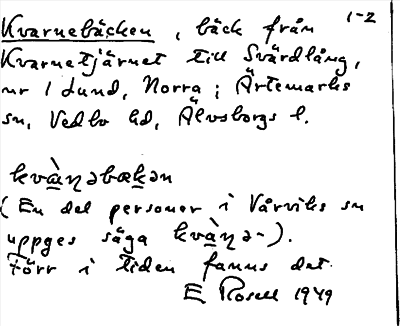 1-2
Kvarnebäcken, bäck från
Kvarnetjärnet till Svärdlång,
nr 1 Lund, Norra; Ärtemarks
sn, Vedbo hd, Älvsborgs l.
kvàꞃəbækən
(En del personer i Vårviks sn
uppges säga kvàꞃə-).
Förr i tiden fanns det.
E Rosell 1949